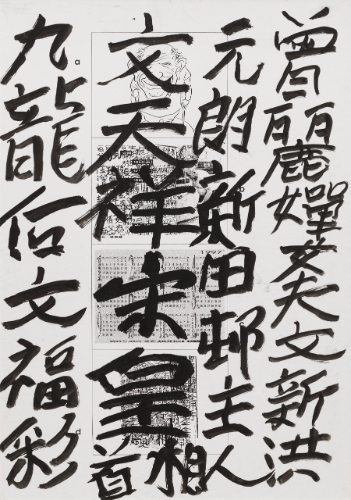 曾麗嬋丈夫文新洪
元朗新田邨主人
文天祥宋皇首相
九龍文福彩